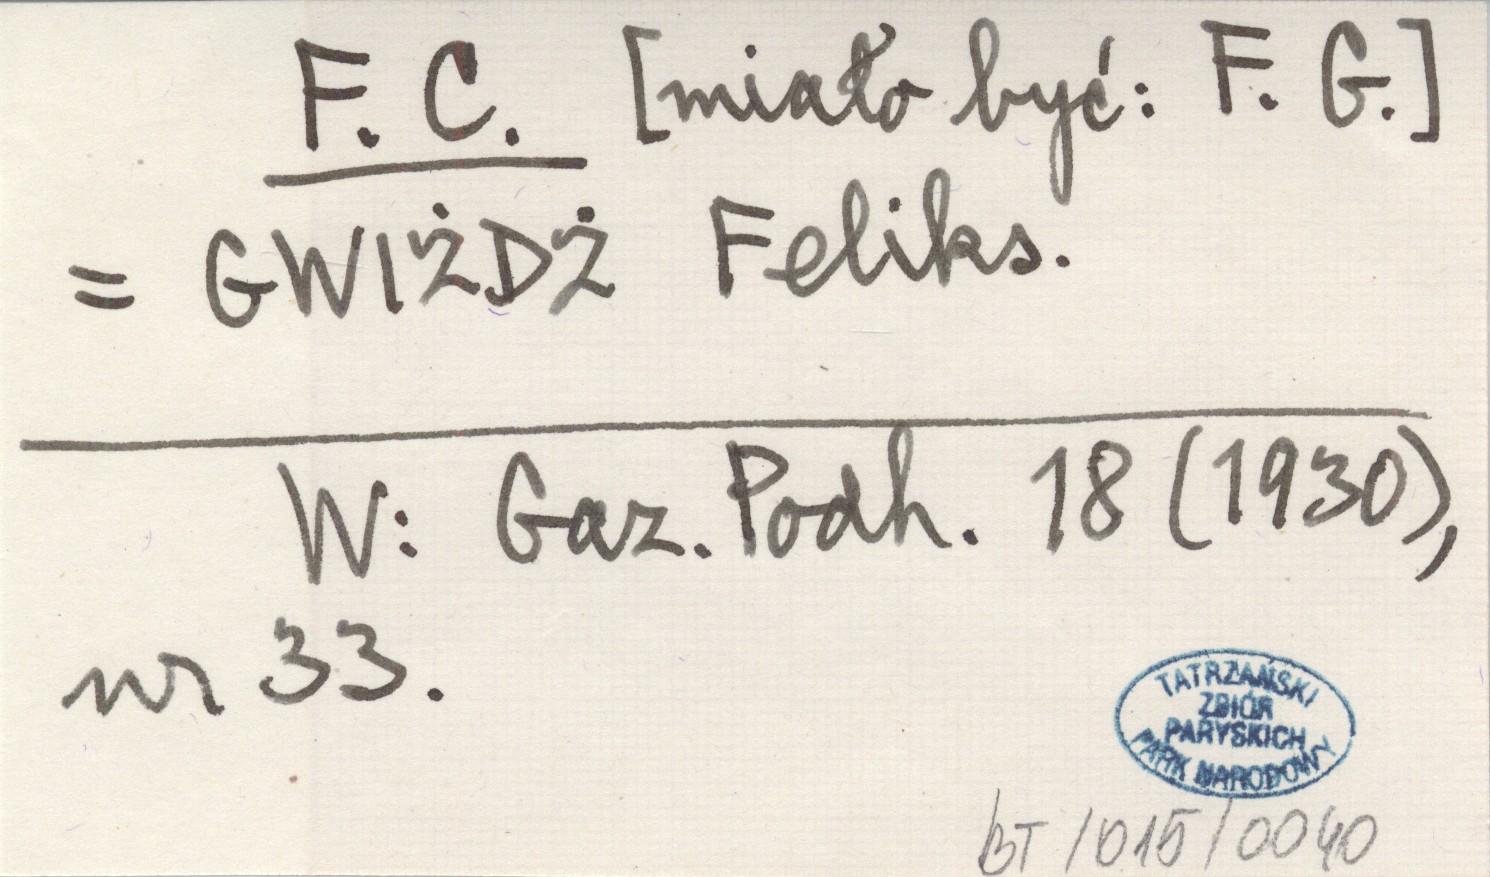 F. C. [miało być: F. G.]
= GWIŻDŻ Feliks.
W: Gaz. Podh. 18 (1930),
nr 33.
TATRZAŃSKI
ZBIÓR
PARYSKICH
PARK NARODOWY
BT/015/0040